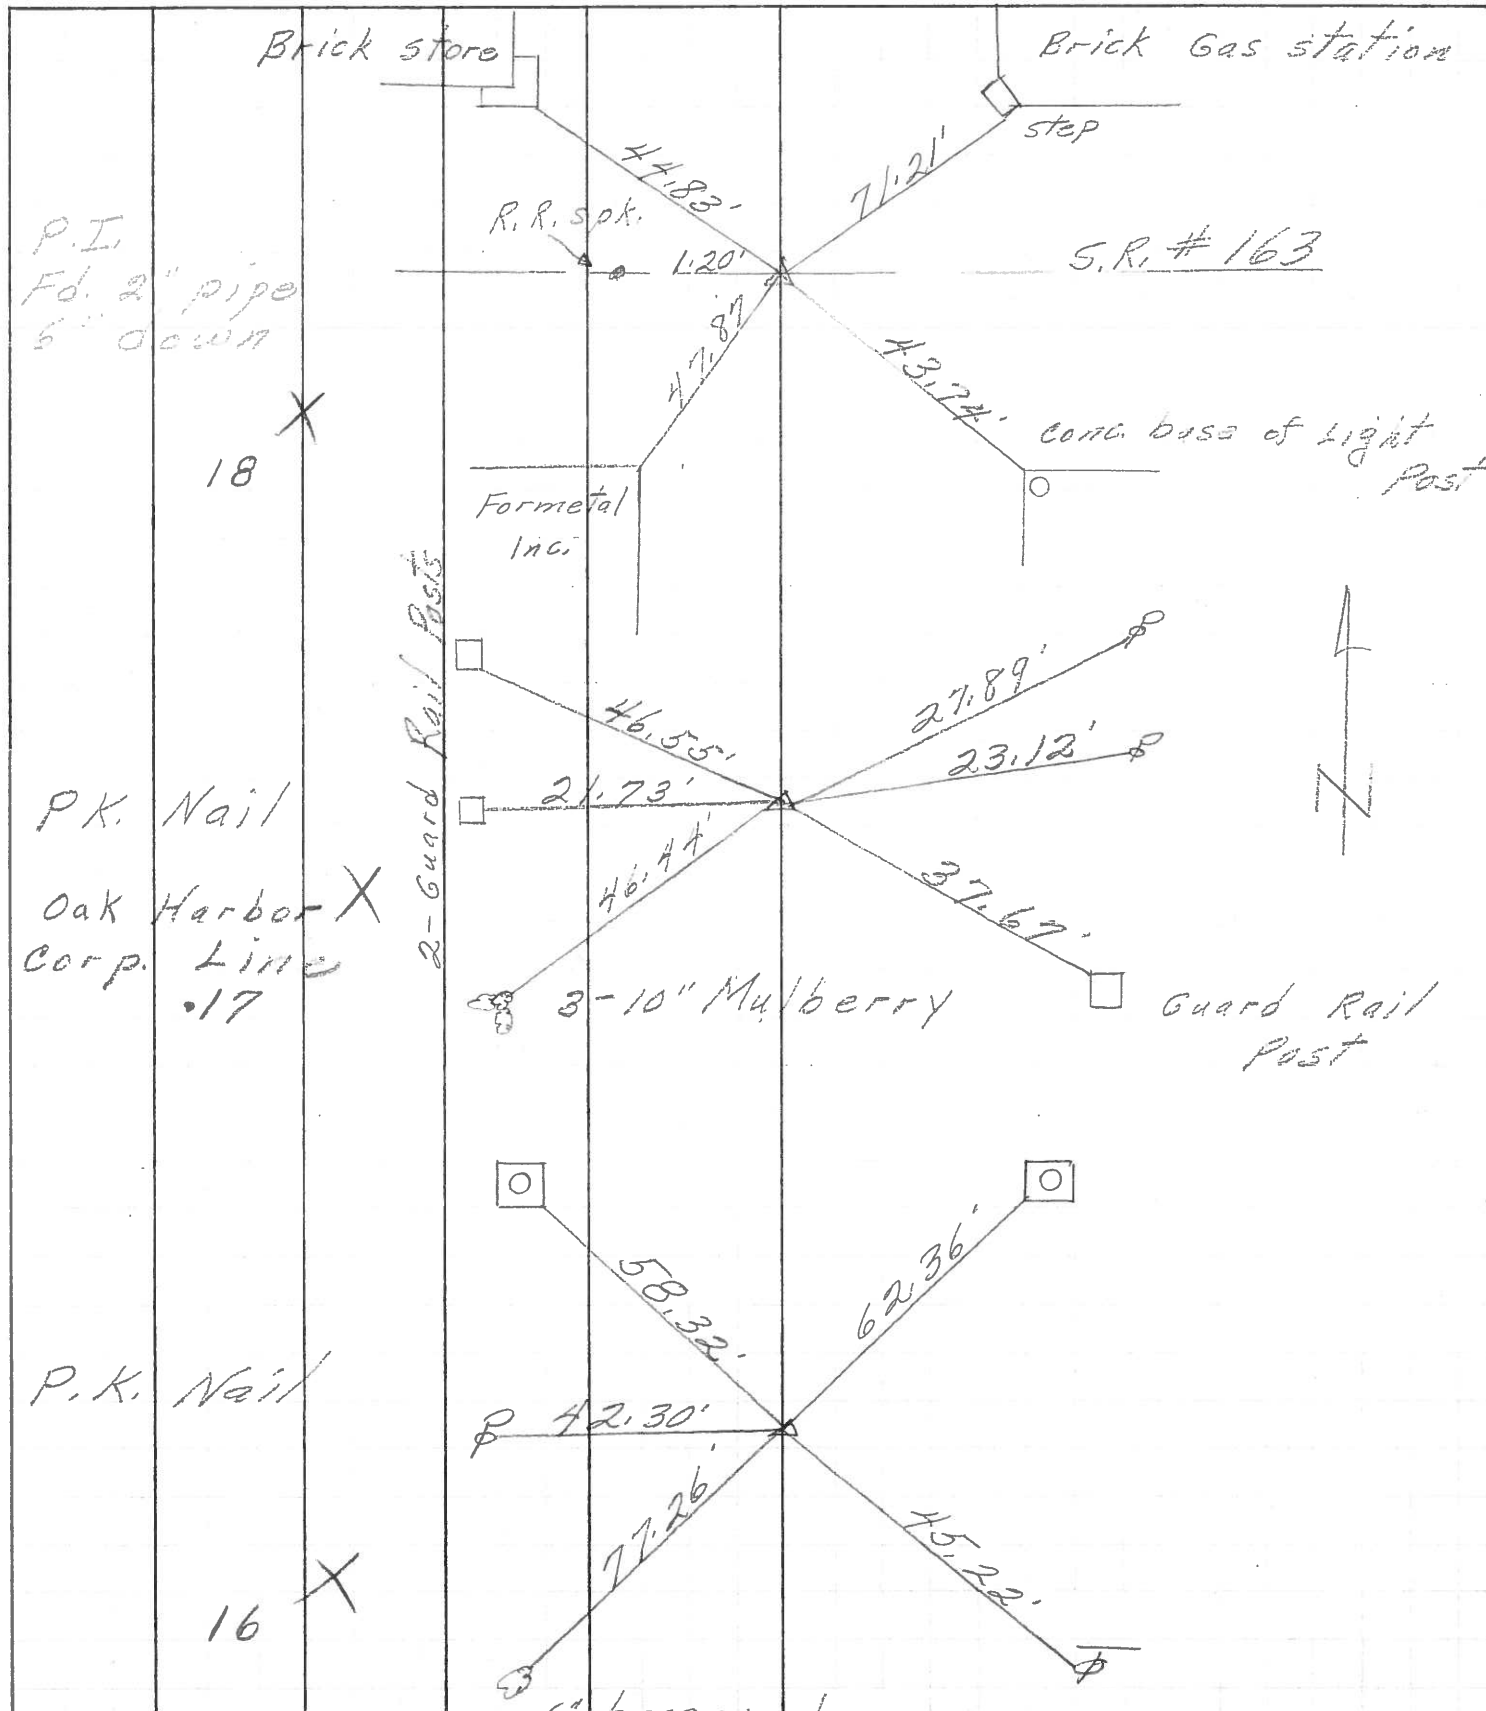 Brick store
Brick Gas station
step
44.83'
71.21'
R.R. spk.
1.20'
S.R. # 163
P.I.
Fd. 2" pipe
6" down
47.87'
43.74'
Conc. base of Light
Post
18
Formetal
Inc.
2-Guard Rail Posts
46.55'
27.89'
23.12'
21.73'
N
P.K. Nail
46.44'
37.67'
Oak Harbor
Corp. Line
.17
3-10" Mulberry
Guard Rail
Post
58.32'
62.36'
P.K. Nail
42.30'
77.26'
45.22'
16